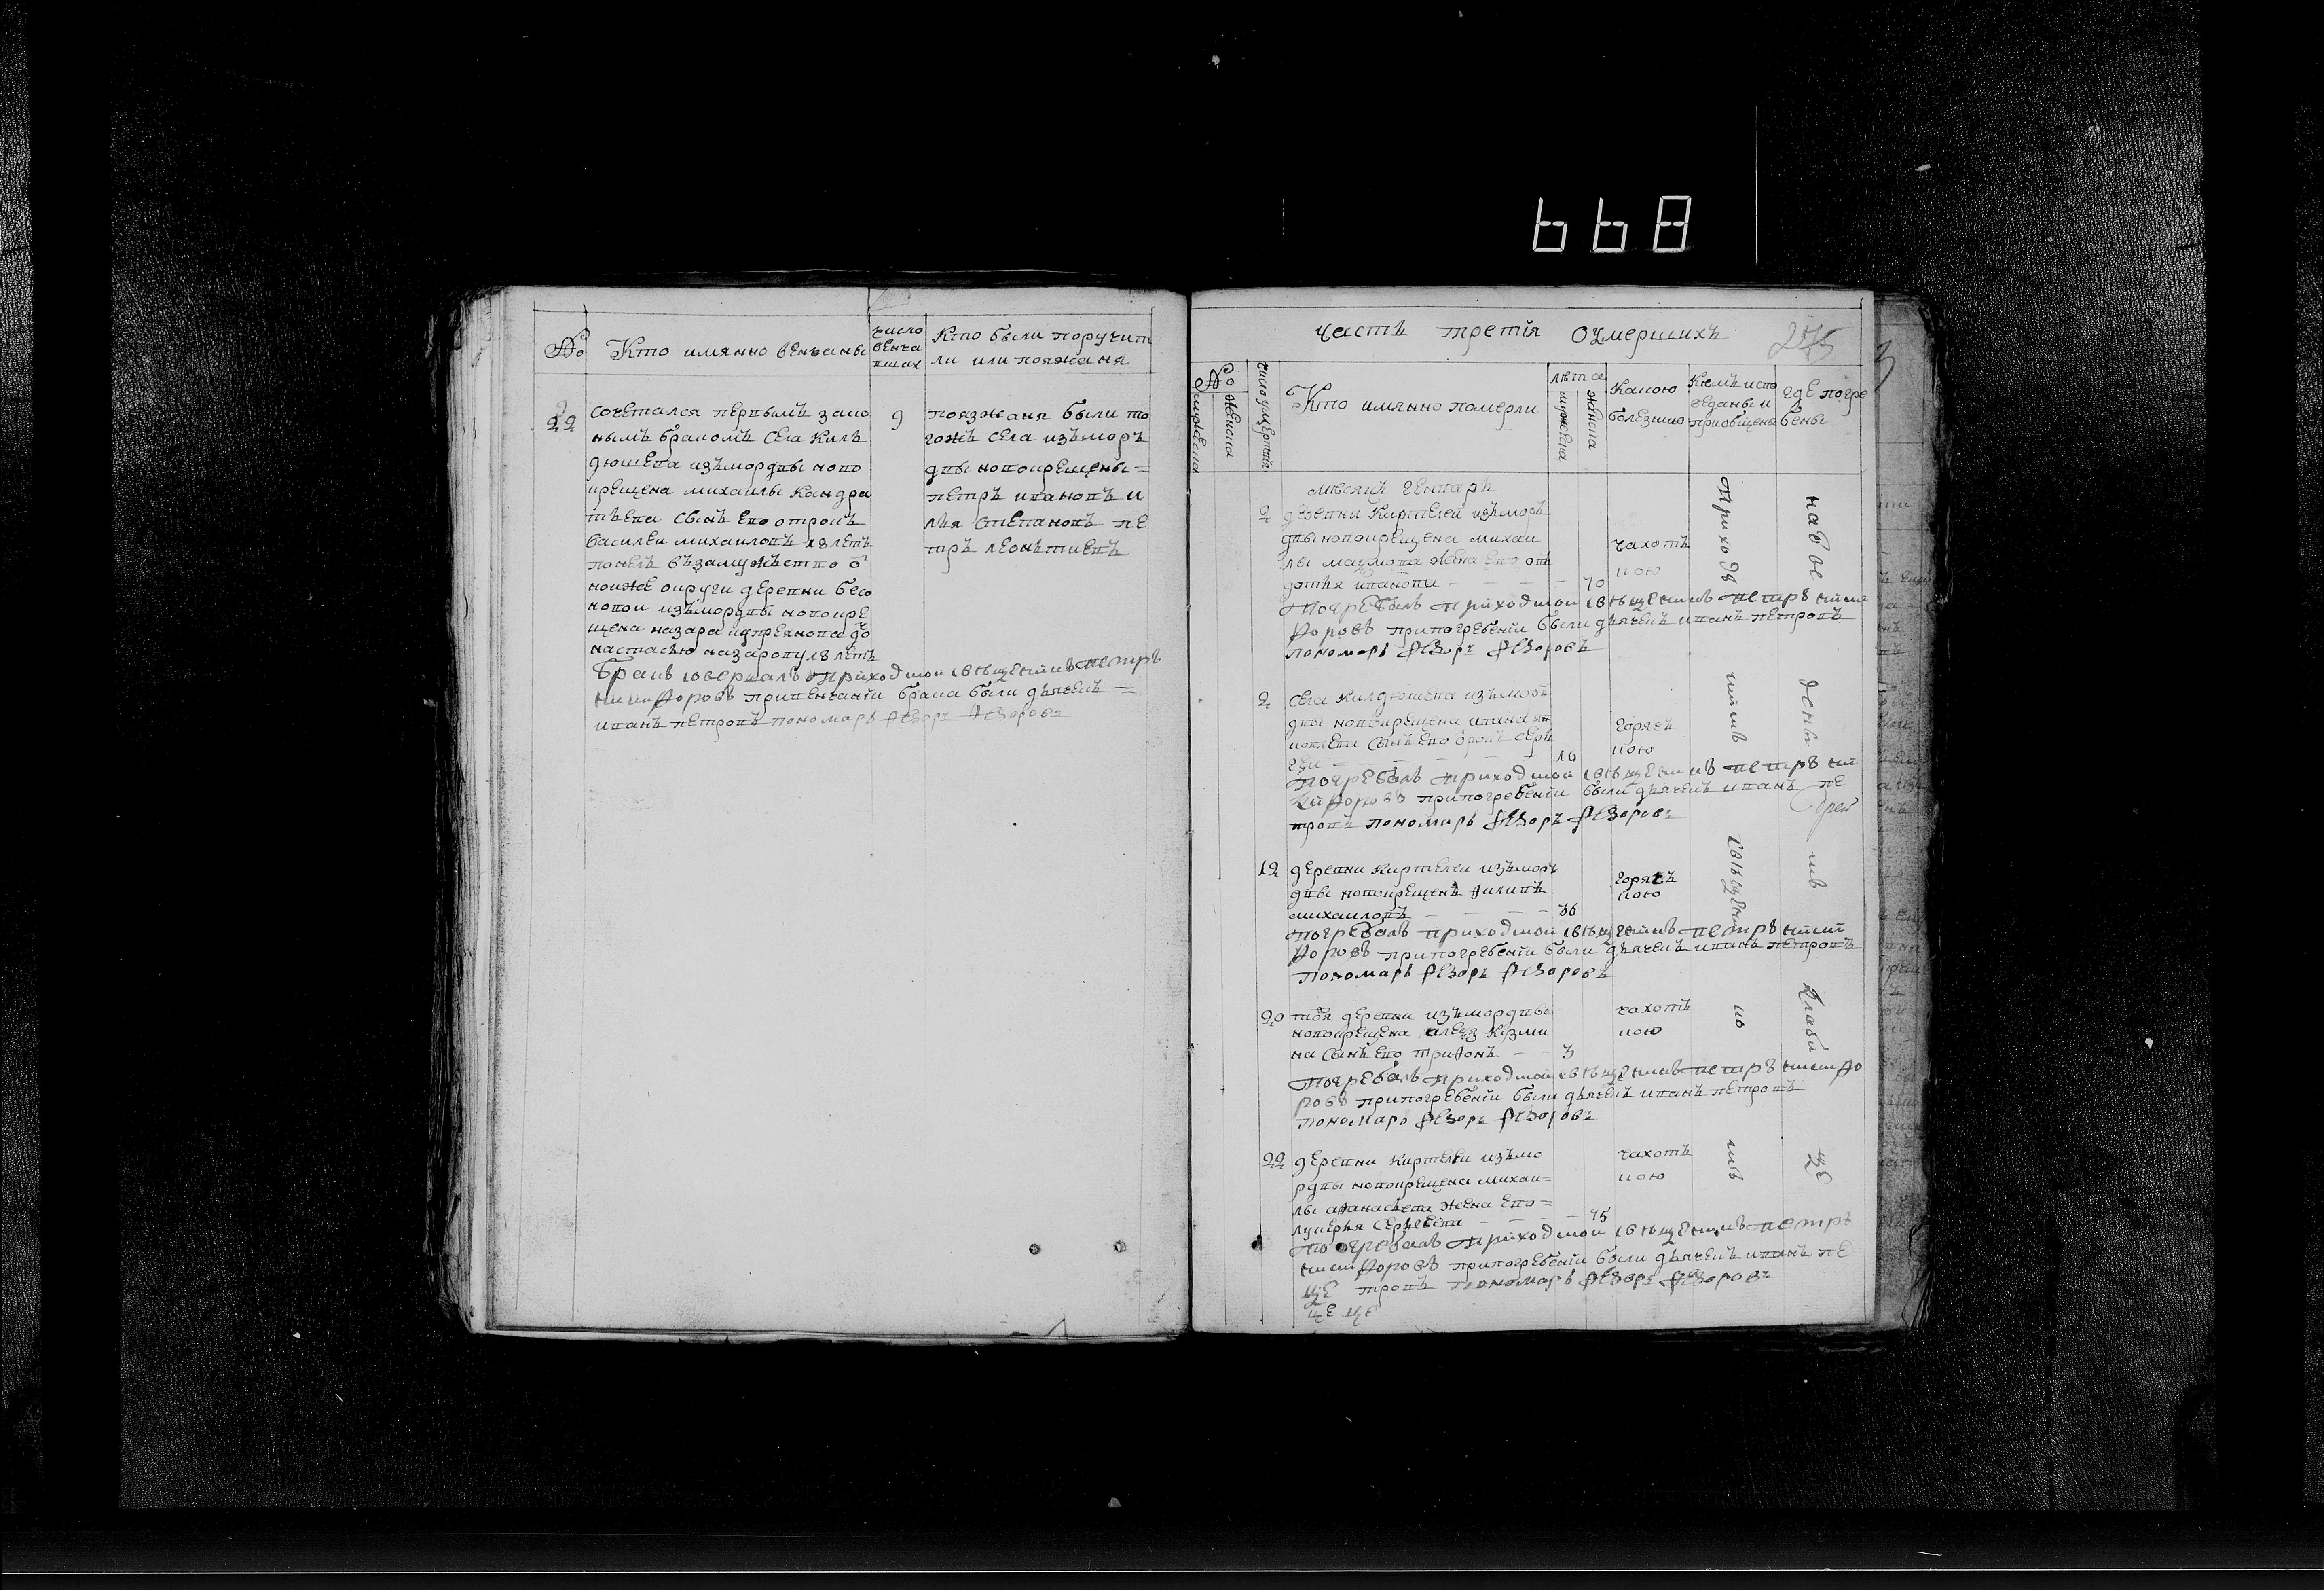 668
№
Кто имянно венчаны
число венча вших
Кто были поручит
ли или пояжаня
22
сочетался первымъ зако
ннымъ бракомъ села Килъ
дюшева изъ мордвы ново
крещена михаилы Кандра
тьева сынъ ево отрокъ
василеи михаиловъ 18 летъ
понелъ въ замужьство о
ноиже округи деревни
новои изъ мордвы новокре
щена назара андреянова до
настасью назарову 18 летъ
9
поязжаня были то
гожъ села изъ моръ
двы новокрещены =
петръ ивановъ и
лья степановъ пе
тръ леонътиевъ
Бракъ совершалъ приходской священникъ петръ
никифоровъ при венчании брака были дьячекъ =
иванъ петровъ пономарь федоръ федоровъ
часть третия о умершихъ
275
№
мужеска
женска
число умертия
Кто имянно померли
лѣта
мужеска
женска
Какою
болезнию
Кемъ испо
веданы и
приобщены
где погре
бены
месяцъ генваръ
2
деревни Киртелеи изъ моръ
двы новокрещена михаи
лы жена ево
дотья иванова
70
чахотъ
кою
погребалъ приходской священникъ петръ ники
форовъ при погребении были дьячекъ иванъ петровъ
пономарь федоръ федоровъ
2
села Килдюшева изъ моръ
двы новокрещена ивана як
ковлева сынъ ево серъ
геи
16
горячъ
кою
погребалъ приходской священникъ петръ ни
кифоровъ при погребении были дьячекъ иванъ пе
тровъ пономарь федоръ федоровъ
12
деревни Киртелеи изъ моръ
двы новокрещенъ филипъ
михаиловъ
36
горячъ
кою
погребалъ приходской священникъ петръ ники
форовъ при погребении были дьячекъ иванъ петровъ
пономарь федоръ федоровъ
20
тоя деревни изъ мордвы
новокрещена алекз Кузми
на сынъ ево трифонъ
3
чахотъ
кою
погребалъ приходской священникъ петръ никифо
ровъ при погребении были дьячекъ иванъ петровъ
пономарь федоръ федоровъ
22
деревни Киртелеи изъ мо
рдвы новокрещена михаи=
лы афанасьева жена ево=
лукерья серъгеева
45
чахотъ
кою
погребалъ приходской священникъ петръ
никифоровъ при погребении были дьячекъ иванъ пе
тровъ пономарь федоръ федоровъ
приходскимъ священникомъ
на оведенномъ кладбище